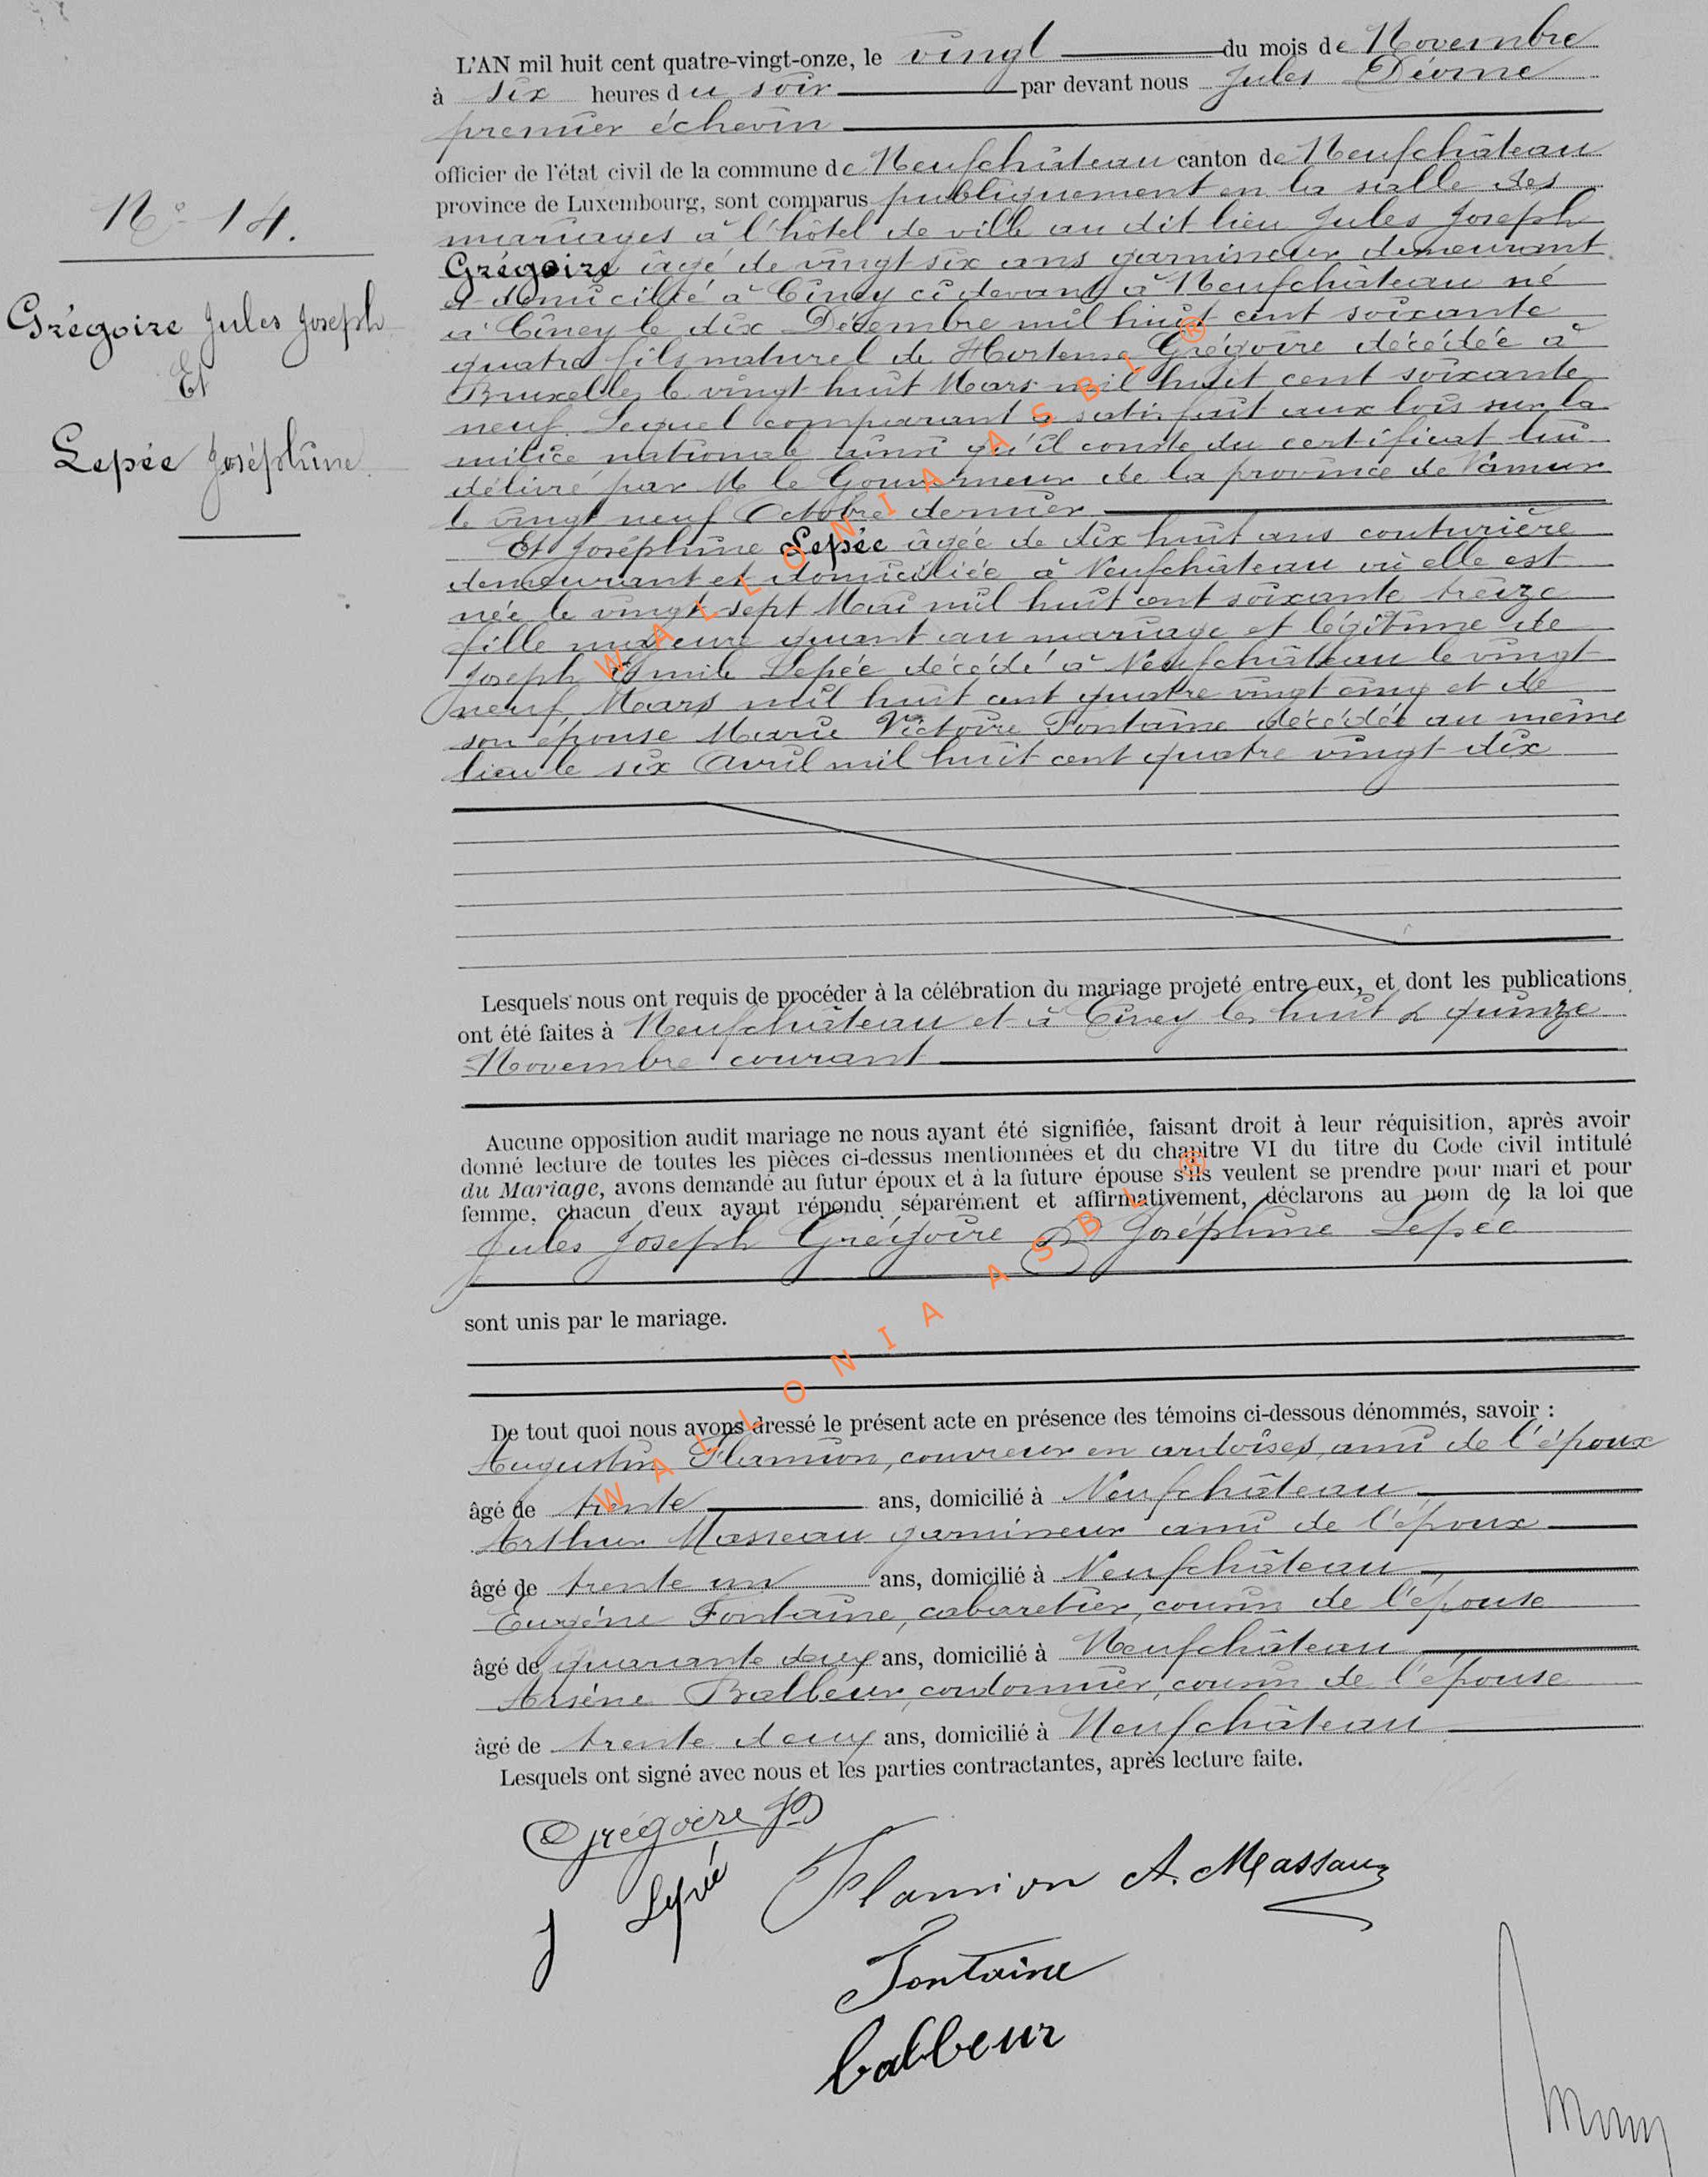 L'AN mil huit cent quatre-vingt-onze, le vingt du mois de Novembre
à six heures du soir par devant nous Jules
premier échevin
officier de l'état civil de la commune de Neufchâteau canton de Neufchâteau
province de Luxembourg, sont comparus publiquement en la salle des
mariages à l'hôtel de ville au dit lieu Jules Joseph
Grégoire âgé de vingt six ans garnisseur demeurant
et domicilié à Ciney ci devant à Neufchâteau né
à Ciney le dix Décembre mil huit cent soixante
quatre fils naturel de Hortense Grégoire décédée à
Bruxelles le vingt huit Mars mil huit cent soixante
neuf. Lequel comparant a satisfait aux lois sur la
milice nationale ainsi qu'il conste du certificat lui
délivré par M le Gouverneur de la province de Namur
le vingt neuf Octobre dernier
Et Joséphine Lepée âgée de dix huit ans couturière
demeurant et domiciliée à Neufchâteau où elle est
née le vingt sept Mai mil huit cent soixante treize
fille majeure quant au mariage et légitime de
Joseph Emile Lepée décédé à Neufchâteau le vingt
neuf Mars mil huit cent quatre vingt cinq et de
son épouse Marie Victoire Fontaine décédée au même
lieu le six Avril mil huit cent quatre vingt dix
N° 14.
Grégoire Jules Joseph
Et
Lepée Joséphine
Lesquels nous ont requis de procéder à la célébration du mariage projeté entre eux, et dont les publications
ont été faites à Neufchâteau et à Ciney les huit & quinze
Novembre courant
Aucune opposition audit mariage ne nous ayant été signifiée, faisant droit à leur réquisition, après avoir
donné lecture de toutes les pièces ci-dessus mentionnées et du chapitre VI du titre du Code civil intitulé
du Mariage, avons demandé au futur époux et à la future épouse s'ils veulent se prendre pour mari et pour
femme, chacun d'eux ayant répondu séparément et affirmativement, déclarons au nom de la loi que
Jules Joseph Grégoire & Joséphine Lepée
sont unis par le mariage.
De tout quoi nous avons dressé le présent acte en présence des témoins ci-dessous dénommés, savoir :
Augustin Flamion, couvreur en ardoises, ami de l'époux
âgé de trente ans, domicilié à Neufchâteau
Arthur Masseau garnisseur ami de l'époux
âgé de trente un ans, domicilié à Neufchâteau
Eugéne Fontaine, cabaretier, cousin de l'épouse
âgé de quarante deux ans, domicilié à Neufchâteau
Arséne Balbeur, cordonnier, cousin de l'épouse
âgé de trente deux ans, domicilié à Neufchâteau
Lesquels ont signé avec nous et les parties contractantes, après lecture faite.
Grégoire JJ
J Lepée Flamion A. Massaux
Fontaine
balbeur
WALLONIA ASBL ®
WALLONIA ASBL ®